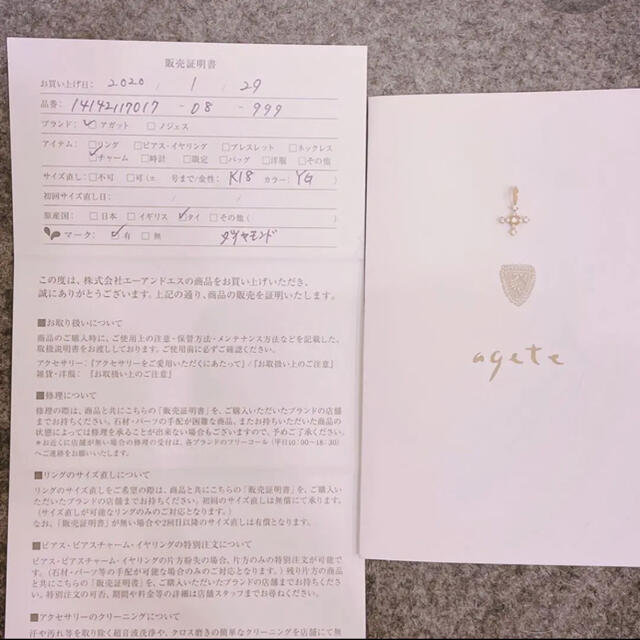 販売証明書
お買い上げ日: 2020 / 1 / 29
品番: 14142117017 -08 -999
ブランド: ☑アガット □ノジェス
アイテム: □リング □ピアス・イヤリング □ブレスレット □ネックレス
☑チャーム □時計 □限定 □バッグ □洋服 □その他
サイズ直し: □不可 □可(± 号まで/金性: K18 カラー: YG )
初回サイズ直し日: / /
原産国: □日本 □イギリス ☑タイ □その他( )
マーク: ☑有 □無 ダイヤモンド
この度は、株式会社エーアンドエスの商品をお買い上げいただき、
誠にありがとうございます。上記の通り、商品の販売を証明いたします。
■お取り扱いについて
商品のご購入時に、ご使用上の注意・保管方法・メンテナンス方法などを記載した、
取扱説明書をお渡ししております。ご使用前に必ずご確認ください。
アクセサリー:『アクセサリーをご愛用いただくにあたって』/『お取扱い上のご注意』
雑貨・洋服: 『お取扱い上のご注意』
■修理について
修理の際は、商品と共にこちらの「販売証明書」を、ご購入いただいたブランドの店舗
までお持ちください。石材・パーツの手配が困難な商品、またお持ちいただいた商品の
状態によっては修理を承ることが出来ない場合もございますので、予めご了承ください。
*お近くに店舗が無い場合の修理の受付は、各ブランドのフリーコール(平日10:00~18:30)
へご連絡をお願いいたします。
■リングのサイズ直しについて
リングのサイズ直しをご希望の際は、商品と共にこちらの「販売証明書」を、ご購入い
ただいたブランドの店舗までお持ちください。初回のサイズ直しは無償にて承ります。
(サイズ直しが可能なリングのみのご対応となります。)
なお、「販売証明書」が無い場合や2回目以降のサイズ直しは有償となります。
■ピアス・ピアスチャーム・イヤリングの特別注文について
ピアス・ピアスチャーム・イヤリングの片方紛失の場合、片方のみの特別注文が可能で
す。(石材・パーツ等の手配が可能な場合のみのご対応となります。)残り片方の商品
と共にこちらの「販売証明書」を、ご購入いただいたブランドの店舗までお持ちください。
特別注文の可否、期間や料金等の詳細は店舗スタッフまでお尋ねください。
■アクセサリーのクリーニングについて
汗や汚れ等を取り除く超音波洗浄や、クロス磨きの簡単なクリーニングを店舗にて無
agete